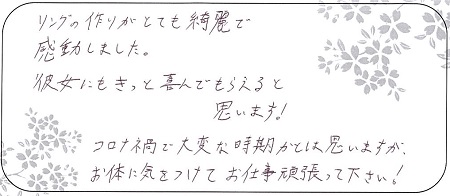 リングの作りがとても綺麗で
感動しました。
彼女にもきっと喜んでもらえると
思います!
コロナ禍で大変な時期かとは思いますが、
お体に気をつけてお仕事頑張って下さい!